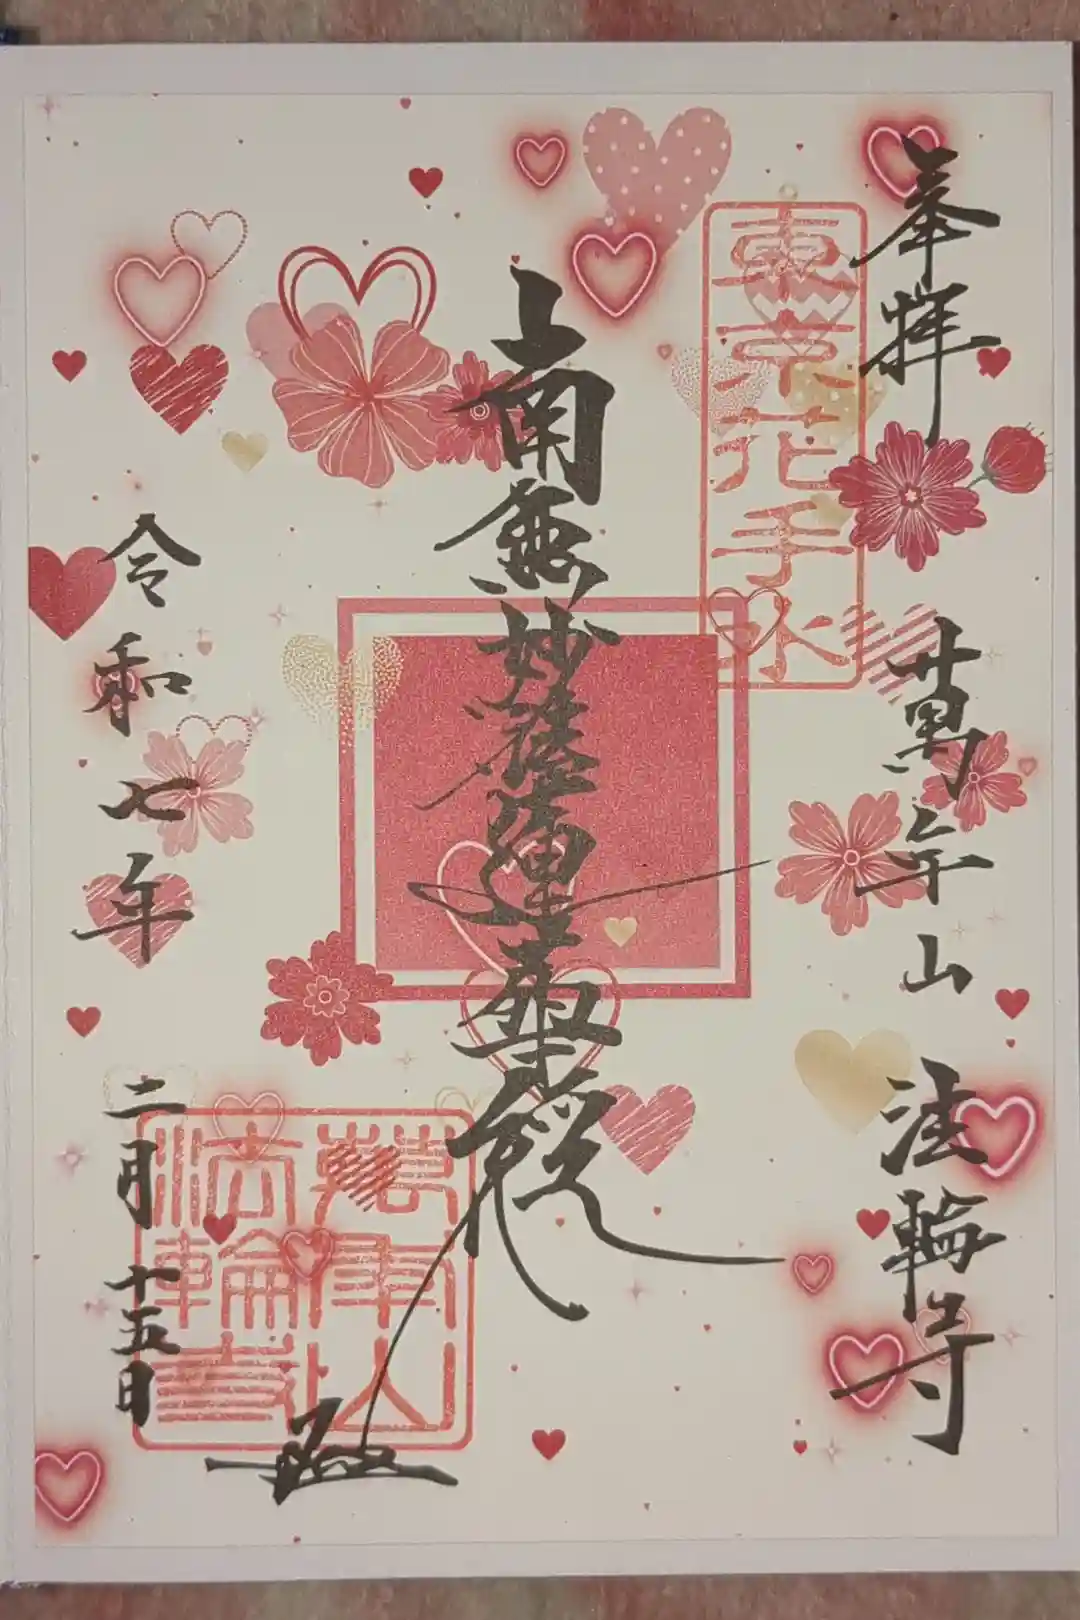 奉拝
萬年山 法輪寺
東京花手水
南無妙法蓮華経
萬年山
法輪寺
令和七年
二月十五日